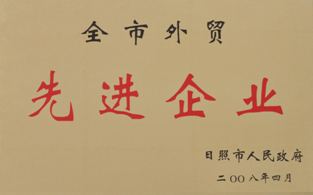 全市外贸
先进企业
日照市人民政府
二OO八年四月